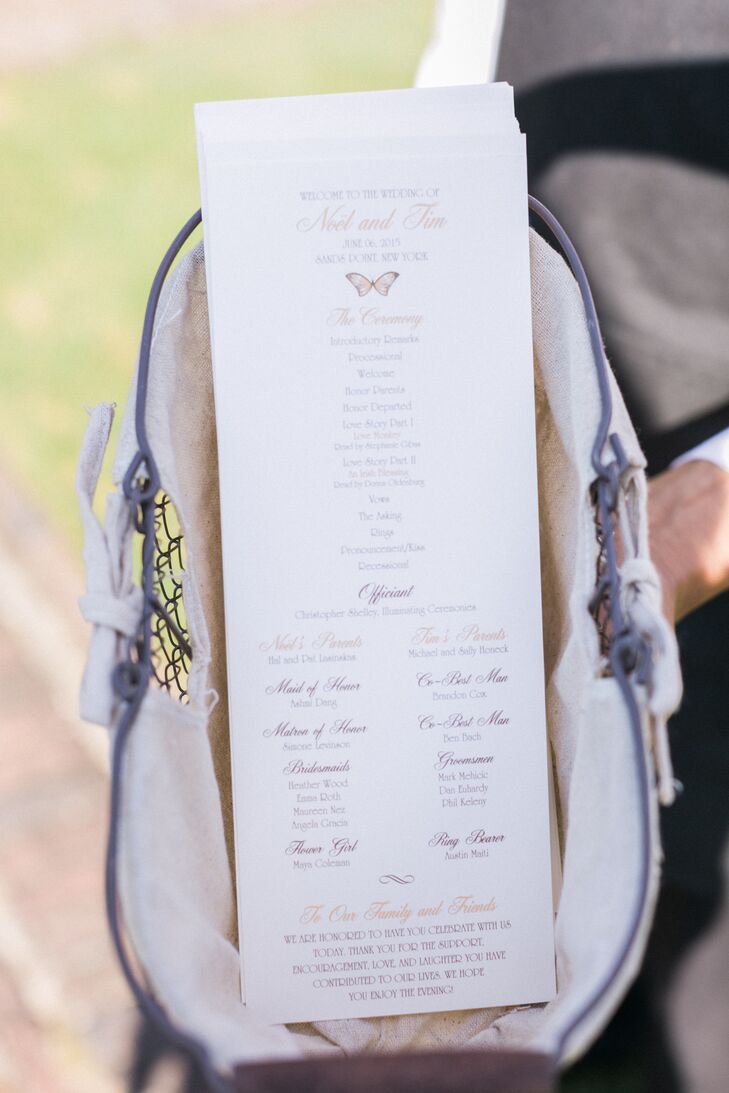 WELCOME TO THE WEDDING OF
Noël and Tim
JUNE 06, 2015
SANDS POINT, NEW YORK
The Ceremony
Introductory Remarks
Processional
Welcome
Honor Parents
Honor Departed
Love Story Part I
Love Monkey
Read by Stephanie Gibas
Love Story Part II
An Irish Blessing
Read by Donna Oldenburg
Vows
The Asking
Rings
Pronouncement/Kiss
Recessional
Officiant
Christopher Shelley, Illuminating Ceremonies
Noël's Parents
Hal and Pat Lasinskas
Maid of Honor
Ashni Dang
Matron of Honor
Simone Levinson
Bridesmaids
Heather Wood
Emma Roth
Maureen Nez
Angela Gracia
Flower Girl
Maya Coleman
Tim's Parents
Michael and Sally Honeck
Co-Best Man
Brandon Cox
Co-Best Man
Ben Bach
Groomsmen
Mark Mehicic
Dan Euhardy
Phil Keleny
Ring Bearer
Austin Maiti
To Our Family and Friends
WE ARE HONORED TO HAVE YOU CELEBRATE WITH US
TODAY. THANK YOU FOR THE SUPPORT,
ENCOURAGEMENT, LOVE, AND LAUGHTER YOU HAVE
CONTRIBUTED TO OUR LIVES. WE HOPE
YOU ENJOY THE EVENING!